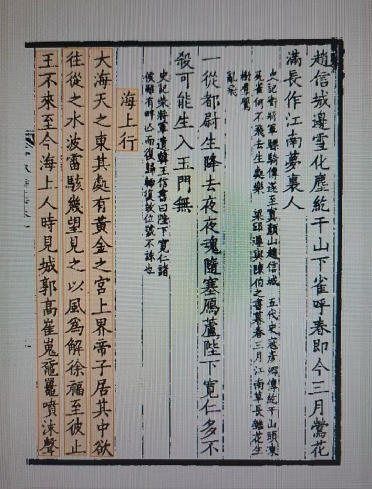 趙信城邊雪化塵紇干山下雀呼春即今三月鶯花
滿長作江南夢裏人
史記衛將軍驃騎傳遂至窴顏山趙信城 五代史寇彥卿傳紇干山頭凍
死雀何不飛去生處樂 梁邱遲與陳伯之書暮春三月江南草長雜花生
樹羣鶯
亂飛
一從都尉生降去夜夜魂隨塞鴈蘆陛下寬仁多不
殺可能生入玉門無
史記柴將軍遺韓王信書曰陛下寬仁諸
侯雖有畔亡而復歸輒復故位號不誅也
海上行
大海天之東其處有黃金之宮上界帝子居其中欲
往從之水波雷駭幾望見之以風為解徐福至彼止
王不來至今海上人時見城郭高崔嵬黿鼉噴沫聲